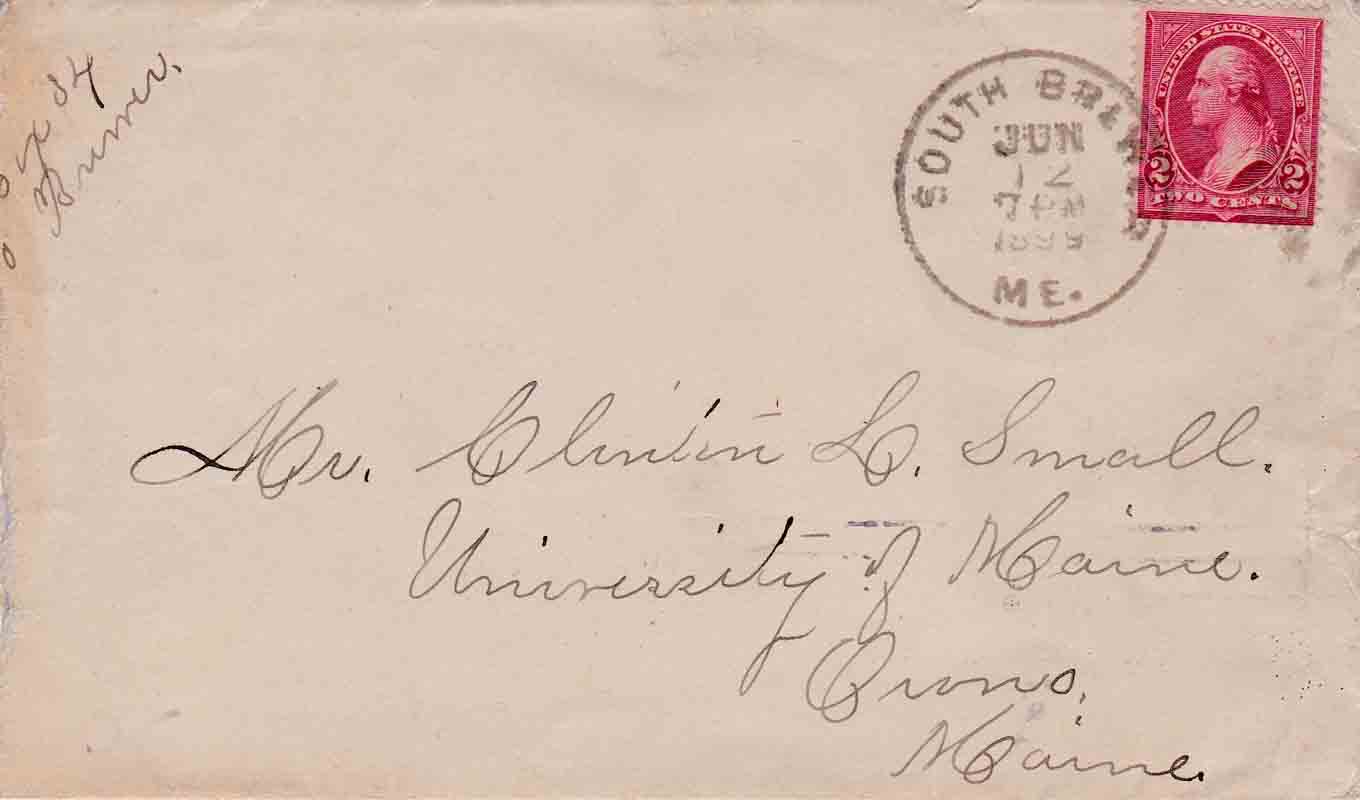 Box 34
Brewer.
UNITED STATES POSTAGE
2 2
TWO CENTS
SOUTH BREWER
JUN
12
7 PM
1899
ME.
Mr. Clinton L. Small.
University of Maine.
Orono,
Maine.